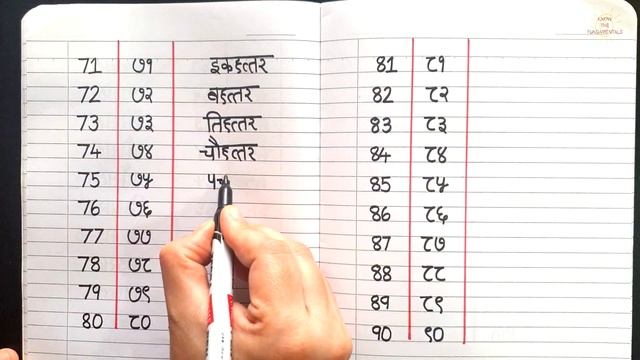 KNOW
THE
FUNDAMENTALS
71 ७१ इकहत्तर
72 ७२ बहत्तर
73 ७३ तिहत्तर
74 ७४ चौहत्तर
75 ७५ पच
76 ७६
77 ७७
78 ७८
79 ७९
80 ८०
81 ८१
82 ८२
83 ८३
84 ८४
85 ८५
86 ८६
87 ८७
88 ८८
89 ८९
90 ९०